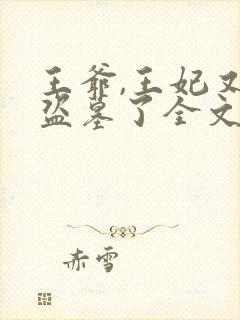 王爷,王妃又
盗墓了全文
赤雪